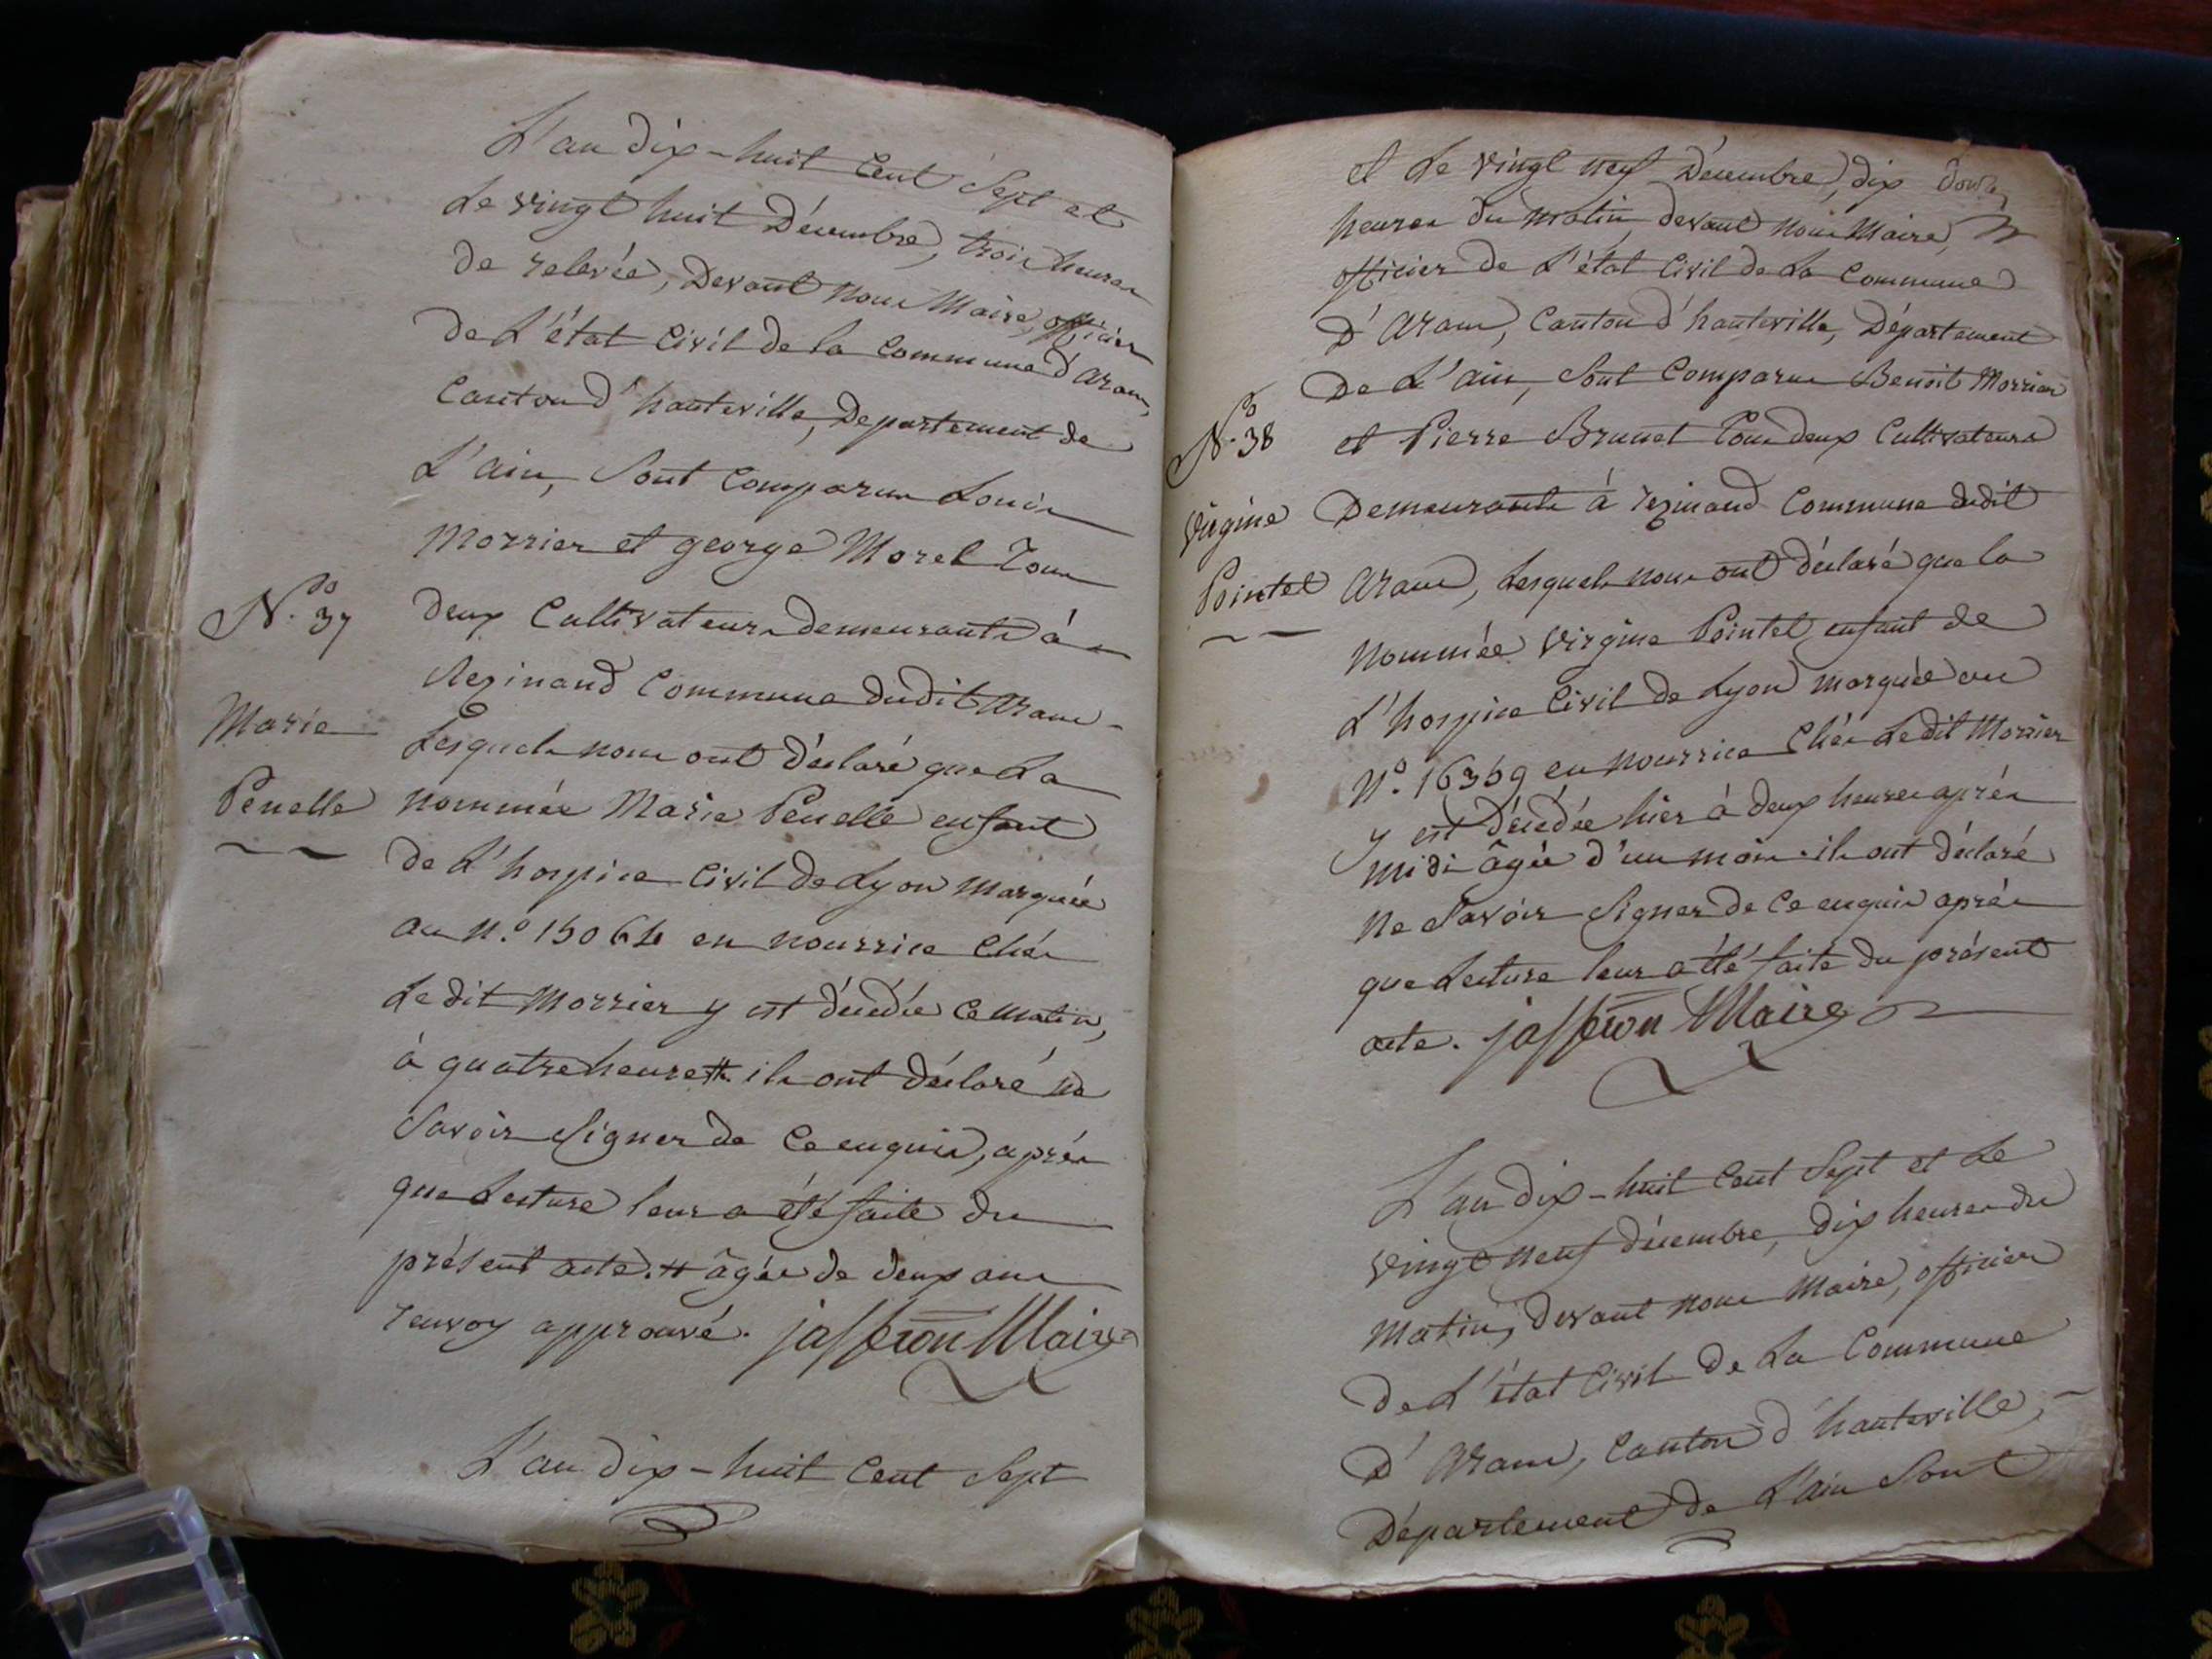 L'an dix-huit Cent Sept et
Le vingt huit Décembre, trois heures
de relevée, Devant nous Maire, officier
de L'état Civil de la Commune d'aranc,
Canton d'hauteville, Département de
L'ain, Sont Comparus Louis
Morrier et george Morel Tous
N.º 37
deux Cultivateurs demeurants à
Resinand Commune dudit Aranc
Marie
Lesquels nous ont déclaré que La
Penelle
nommée Marie Penelle enfant
de L'hospice Civil de Lyon Marquée
au N.º 15064 en nourrice Chés
Ledit Morrier y est décédée Ce matin,
à quatre heures #. ils ont déclaré ne
Savoir Signer de Ce enquis, après
que Lecture leur a été faite du
présent acte. # âgée de deux ans
renvoy approuvé. jasseron Maire
L'an dix-huit Cent Sept
et Le vingt neuf Décembre, dix
heures du matin devant nous Maire,
officier de L'état Civil de La Commune
D'Aranc, Canton d'hauteville, Département
De L'ain, Sont Comparus Benoit Morrier
N.º 38
et Pierre Brunet Tous deux Cultivateurs
Virgine
Demeurants à resinand Commune dudit
Pointel
Aranc, Lesquels nous ont déclaré que la
Nommée Virgine Pointel enfant de
L'hospice Civil de Lyon marquée au
N.º 16359 en nourrice Chés Ledit Morrier
y est décédée hier à deux heures après
midi âgée d'un mois. ils ont déclaré
Ne Savoir Signer de Ce enquis après
que Lecture leur a été faite du présent
acte. jasseron Maire
L'an dix-huit Cent Sept et Le
vingt neuf décembre, dix heures du
Matin, devant nous Maire, officier
de L'état Civil de La Commune
D'Aranc, Canton d'hauteville,
Département de L'ain Sont